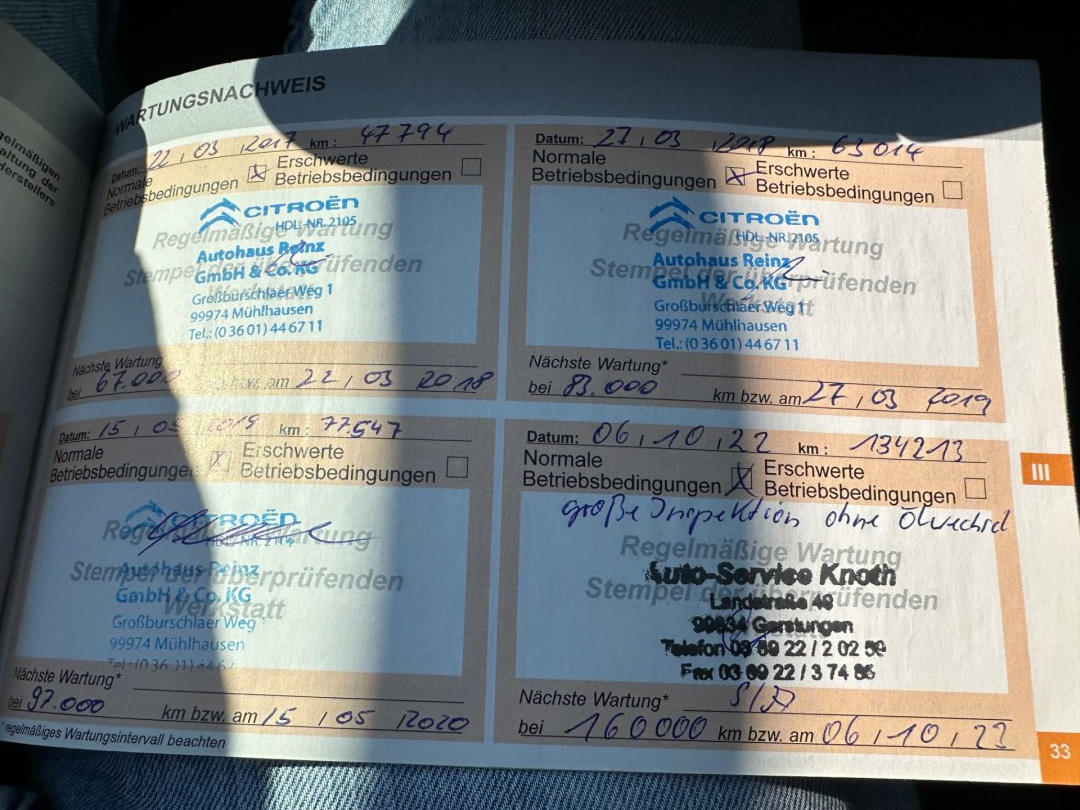 gelmäßigen
altung der
derstellers
WARTUNGSNACHWEIS
Datum: 22, 03, 2017 km: 47794
Normale
Betriebsbedingungen
Erschwerte
Betriebsbedingungen
CITROËN
HDL-NR. 2105
Regelmäßige Wartung
Autohaus Reinz
Stempel der überprüfenden
GmbH & Co. KG
Werkstatt
Großburschlaer Weg 1
99974 Mühlhausen
Tel.: (0 36 01) 44 67 11
Nächste Wartung
bei 67.000 km bzw. am 22, 03 2018
Datum: 27, 03 2018 km: 63014
Normale
Betriebsbedingungen
Erschwerte
Betriebsbedingungen
CITROËN
HDL-NR. 2105
Regelmäßige Wartung
Autohaus Reinz
Stempel der überprüfenden
GmbH & Co. KG
Werkstatt
Großburschlaer Weg 1
99974 Mühlhausen
Tel.: (0 36 01) 44 67 11
Nächste Wartung*
bei 83.000 km bzw. am 27, 03 2019
Datum: 15, 05 2019 km: 77547
Normale
Betriebsbedingungen
Erschwerte
Betriebsbedingungen
CITROËN
Regelmäßige Wartung
Autohaus Reinz
Stempel der überprüfenden
GmbH & Co. KG
Werkstatt
Großburschlaer Weg
99974 Mühlhausen
Nächste Wartung*
bei 97.000 km bzw. am 15, 05 2020
* regelmäßiges Wartungsintervall beachten
Datum: 06, 10, 22 km: 134213
Normale
Betriebsbedingungen
Erschwerte
Betriebsbedingungen
große Inspektion ohne Ölwechsel
Regelmäßige Wartung
Auto-Service Knoth
Stempel der überprüfenden
Landstraße 40
Werkstatt
99834 Gerstungen
Telefon 03 69 22 / 2 02 59
Fax 03 69 22 / 3 74 86
Nächste Wartung*
bei 160000 km bzw. am 06, 10, 23
III
33